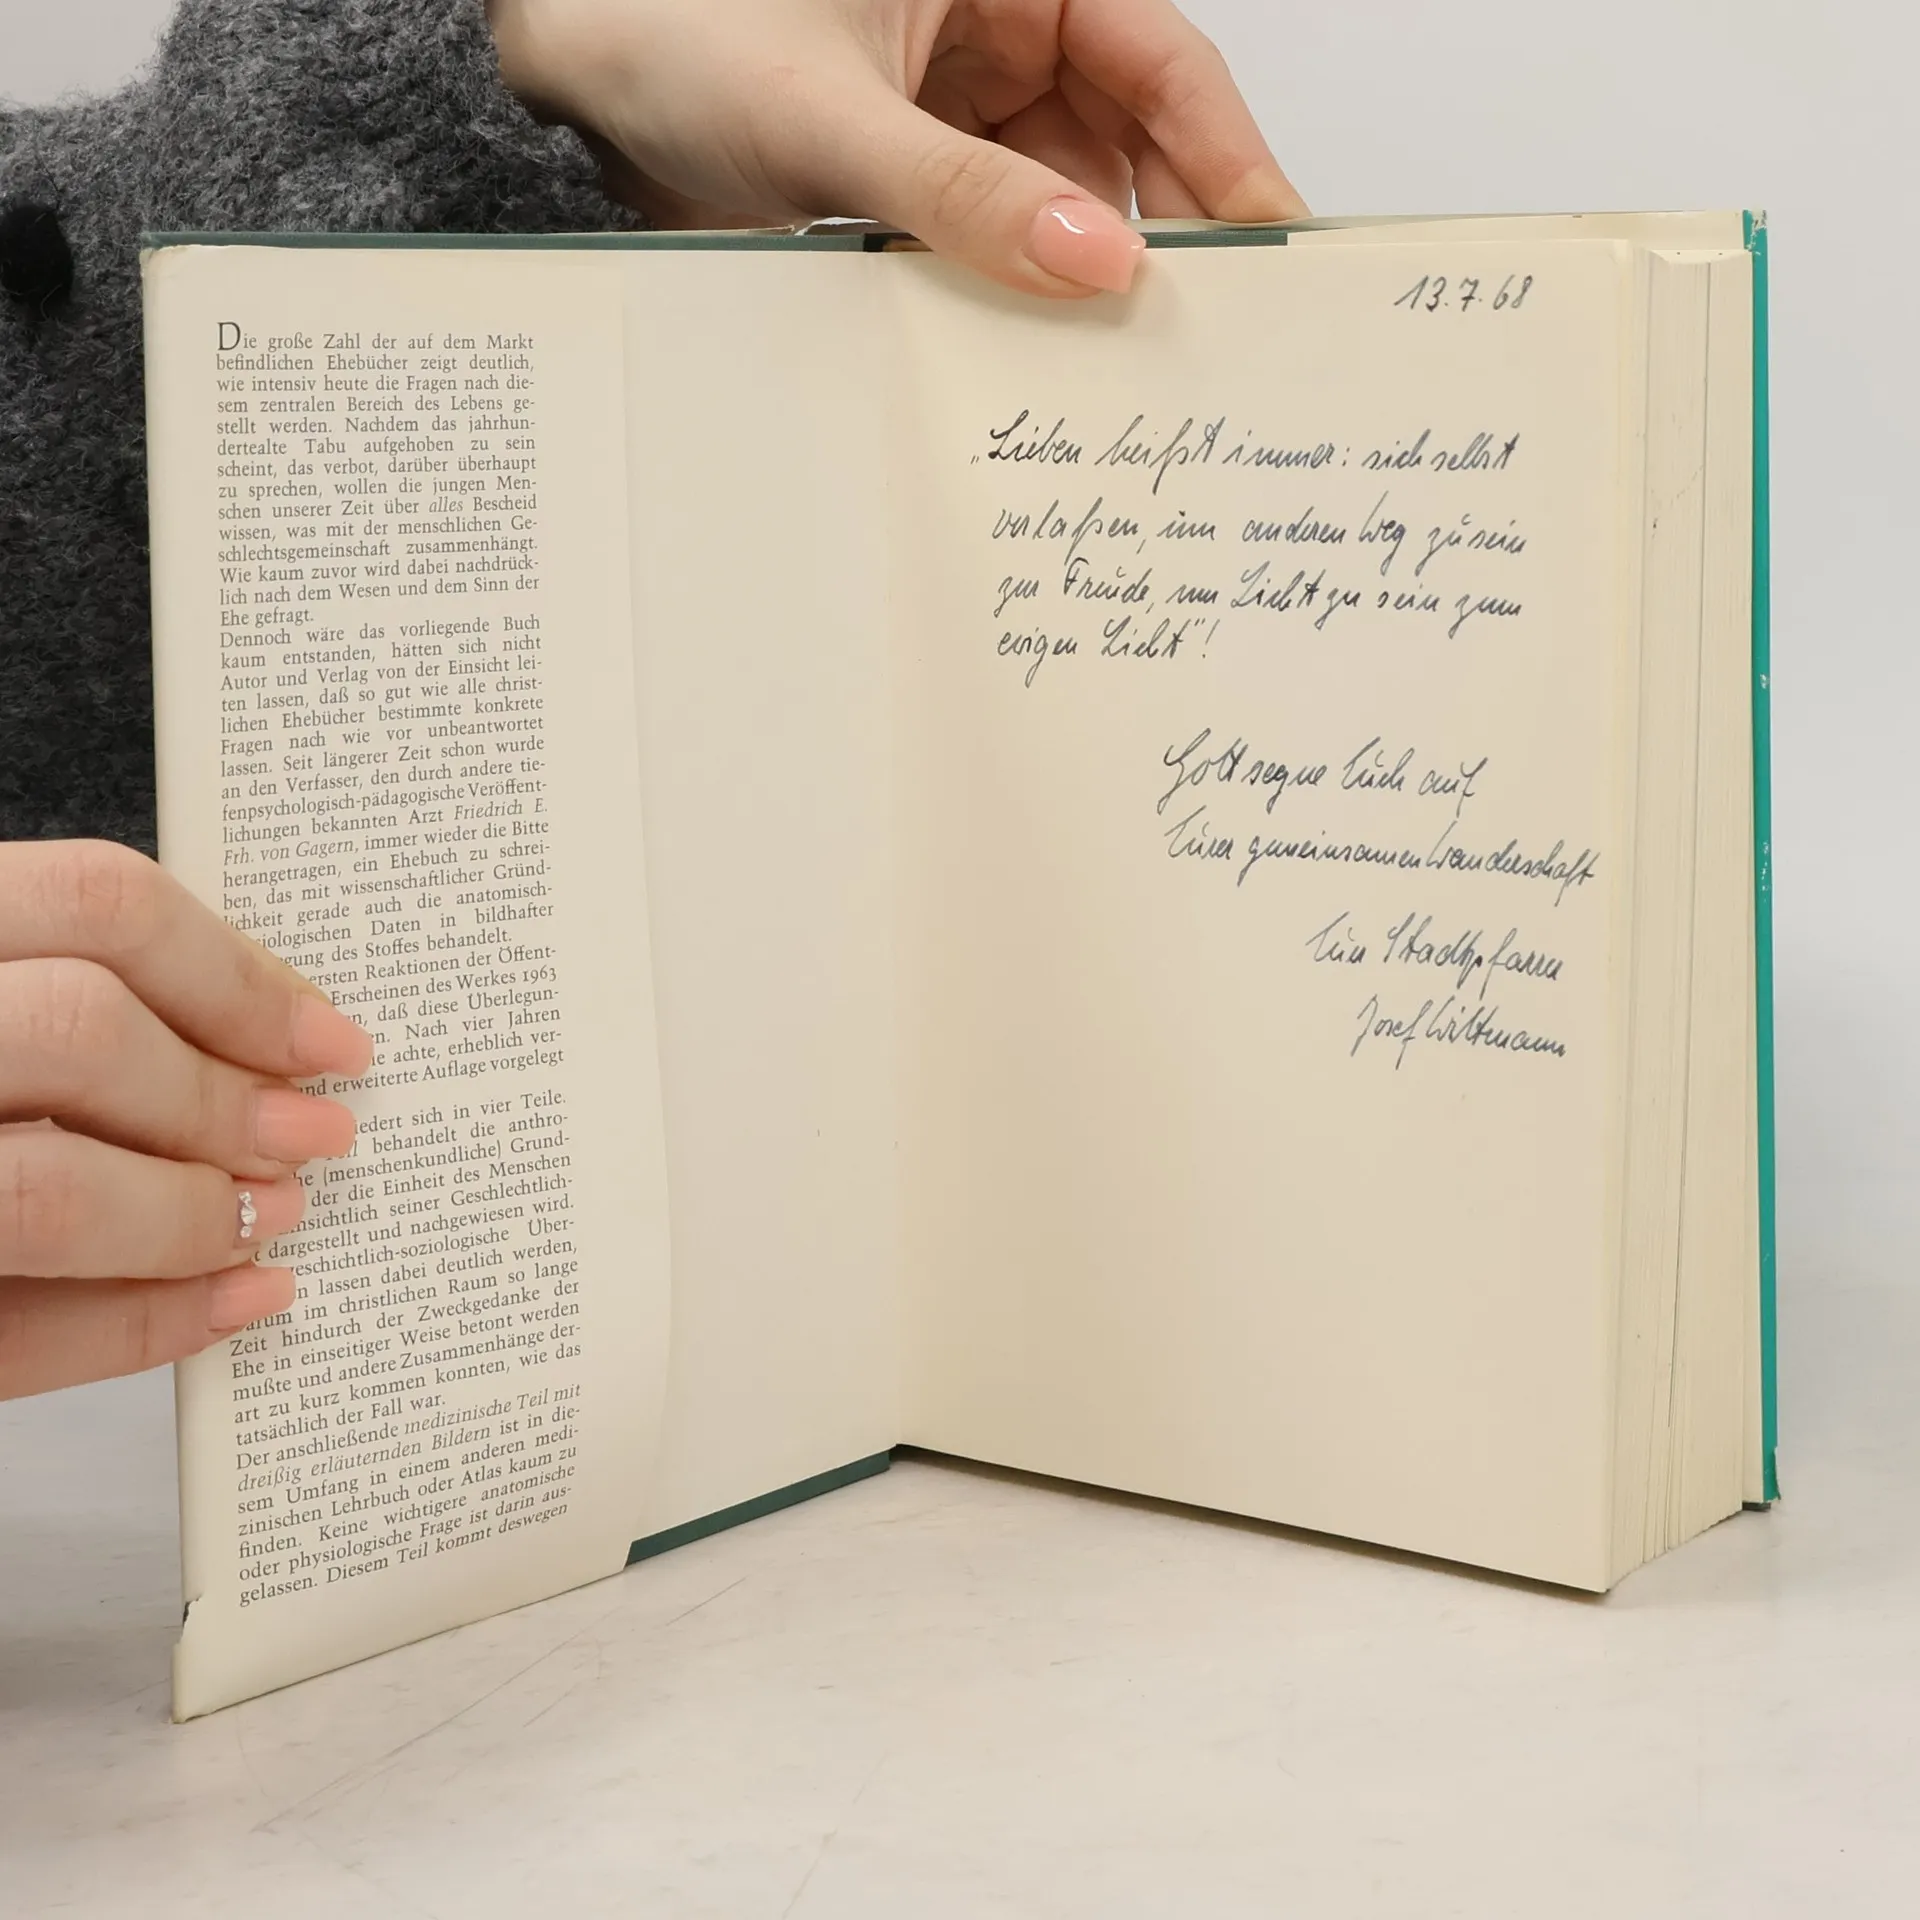 Die große Zahl der auf dem Markt
befindlichen Ehebücher zeigt deutlich,
wie intensiv heute die Fragen nach die-
sem zentralen Bereich des Lebens ge-
stellt werden. Nachdem das jahrhun-
dertealte Tabu aufgehoben zu sein
scheint, das verbot, darüber überhaupt
zu sprechen, wollen die jungen Men-
schen unserer Zeit über alles Bescheid
wissen, was mit der menschlichen Ge-
schlechtsgemeinschaft zusammenhängt.
Wie kaum zuvor wird dabei nachdrück-
lich nach dem Wesen und dem Sinn der
Ehe gefragt.
Dennoch wäre das vorliegende Buch
kaum entstanden, hätten sich nicht
Autor und Verlag von der Einsicht lei-
ten lassen, daß so gut wie alle christ-
lichen Ehebücher bestimmte konkrete
Fragen nach wie vor unbeantwortet
lassen. Seit längerer Zeit schon wurde
an den Verfasser, den durch andere tie-
fenpsychologisch-pädagogische Veröffent-
lichungen bekannten Arzt Friedrich E.
Frh. von Gagern, immer wieder die Bitte
herangetragen, ein Ehebuch zu schrei-
ben, das mit wissenschaftlicher Gründ-
lichkeit gerade auch die anatomisch-
siologischen Daten in bildhafter
gung des Stoffes behandelt.
ersten Reaktionen der Öffent-
Erscheinen des Werkes 1963
n, daß diese Überlegun-
en. Nach vier Jahren
ie achte, erheblich ver-
nd erweiterte Auflage vorgelegt
iedert sich in vier Teile.
behandelt die anthro-
he (menschenkundliche) Grund-
der die Einheit des Menschen
nsichtlich seiner Geschlechtlich-
t dargestellt und nachgewiesen wird.
eschichtlich-soziologische Über-
n lassen dabei deutlich werden,
arum im christlichen Raum so lange
Zeit hindurch der Zweckgedanke der
Ehe in einseitiger Weise betont werden
mußte und andere Zusammenhänge der-
art zu kurz kommen konnten, wie das
tatsächlich der Fall war.
Der anschließende medizinische Teil mit
dreißig erläuternden Bildern ist in die-
sem Umfang in einem anderen medi-
zinischen Lehrbuch oder Atlas kaum zu
finden. Keine wichtigere anatomische
oder physiologische Frage ist darin aus-
gelassen. Diesem Teil kommt deswegen
13.7.68
„Lieben heißt immer: sich selbst
verlaßen, um anderen Weg zu sein
zur Freude, um Licht zu sein zum
ewigen Licht"!
Gott segne Euch auf
Eurer gemeinsamen Wanderschaft
Euer Stadtpfarrer
Josef Wittmann